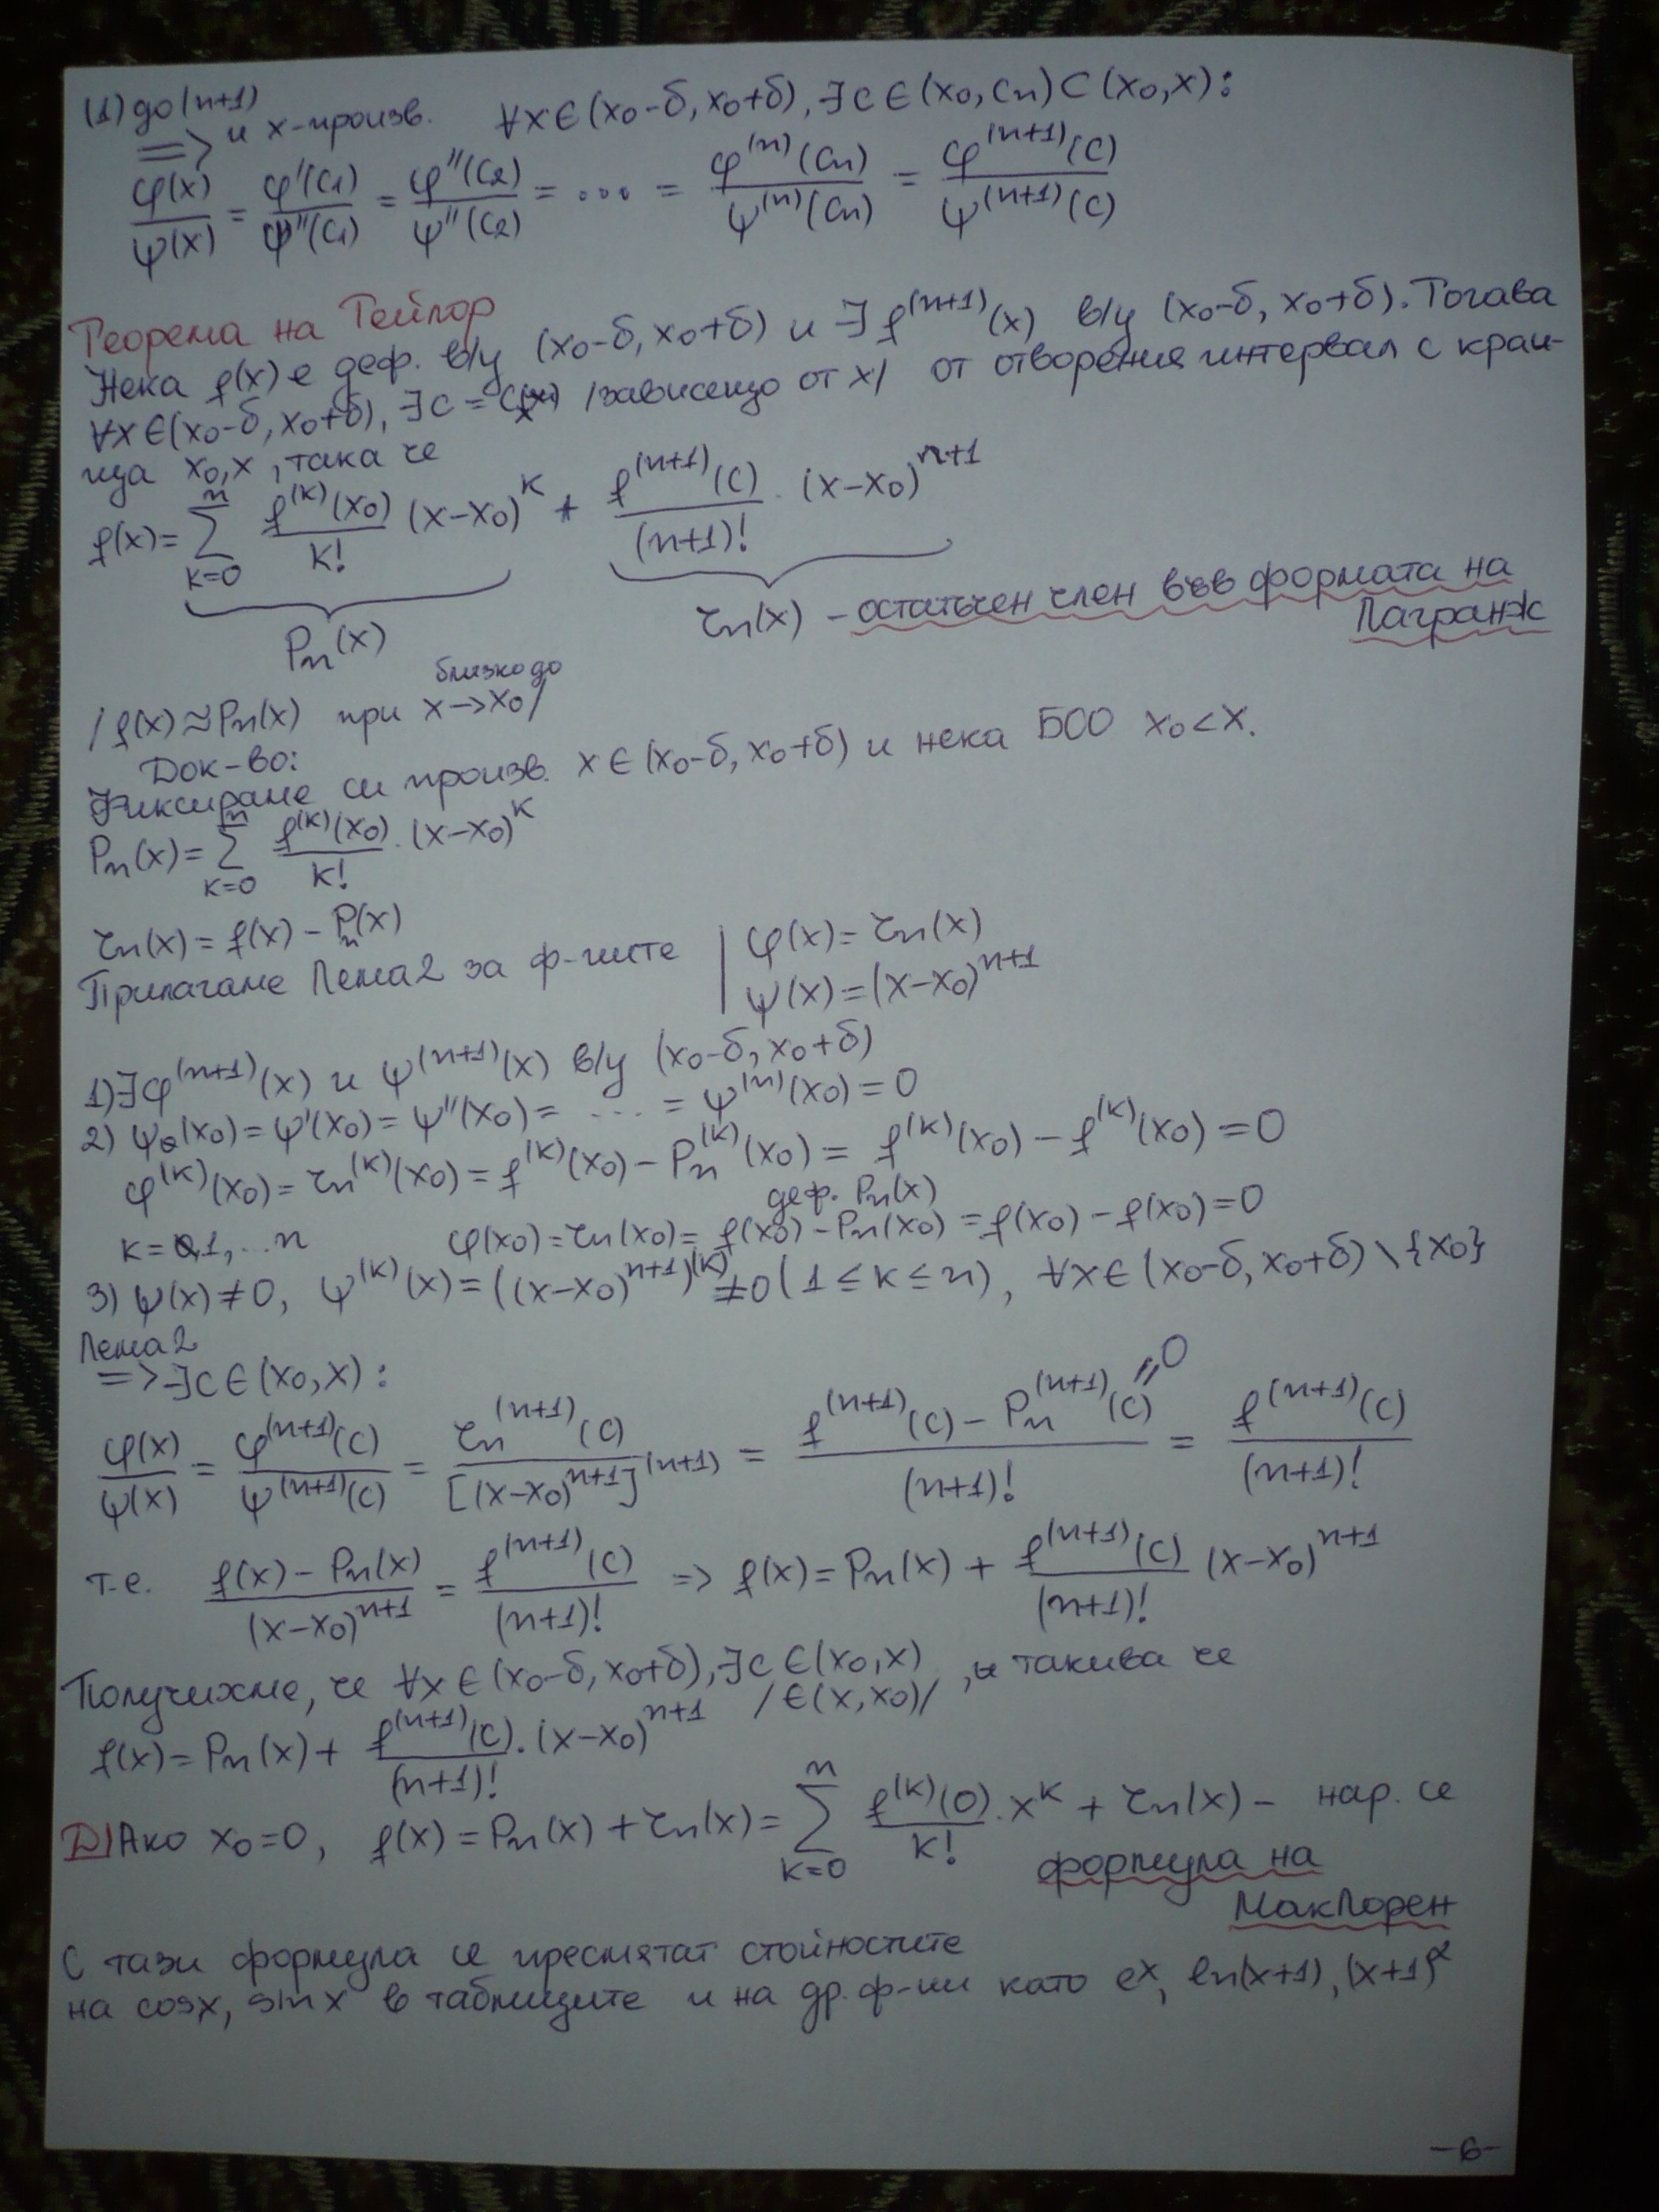 (1) до (n+1)
=> и x-произв. ∀x∈(x₀-δ, x₀+δ), ∃c∈(x₀, cₙ)⊂(x₀, x):
φ(x)/ψ(x) = φ'(c₁)/ψ''(c₁) = φ''(c₂)/ψ''(c₂) = ... = φ⁽ⁿ⁾(cₙ)/ψ⁽ⁿ⁾(cₙ) = φ⁽ⁿ⁺¹⁾(c)/ψ⁽ⁿ⁺¹⁾(c)
Теорема на Тейлор
Нека f(x) е деф. в/у (x₀-δ, x₀+δ) и ∃f⁽ⁿ⁺¹⁾(x) в/у (x₀-δ, x₀+δ). Тогава
∀x∈(x₀-δ, x₀+δ), ∃c = c(x) /зависещо от x/ от отворения интервал с краи-
ща x₀, x, така че
f(x) = Σ_{k=0}^{n} f⁽ᵏ⁾(x₀)/k! (x-x₀)ᵏ + f⁽ⁿ⁺¹⁾(c)/(n+1)! . (x-x₀)ⁿ⁺¹
Pₙ(x) rₙ(x) - остатъчен член във формата на
Лагранж
/f(x)≈Pₙ(x) при x→x₀/ близко до
Док-во:
Фиксираме си произв. x∈(x₀-δ, x₀+δ) и нека БОО x₀<x.
Pₙ(x) = Σ_{k=0}^{n} f⁽ᵏ⁾(x₀)/k! . (x-x₀)ᵏ
rₙ(x) = f(x) - Pₙ(x)
Прилагаме Лема 2 за ф-иите | φ(x) = rₙ(x)
ψ(x) = (x-x₀)ⁿ⁺¹
1) ∃φ⁽ⁿ⁺¹⁾(x) и ψ⁽ⁿ⁺¹⁾(x) в/у (x₀-δ, x₀+δ)
2) ψ(x₀) = ψ'(x₀) = ψ''(x₀) = .... = ψ⁽ⁿ⁾(x₀) = 0
φ⁽ᵏ⁾(x₀) = rₙ⁽ᵏ⁾(x₀) = f⁽ᵏ⁾(x₀) - Pₙ⁽ᵏ⁾(x₀) = f⁽ᵏ⁾(x₀) - f⁽ᵏ⁾(x₀) = 0
деф. Pₙ(x)
k = 0,1,...n φ(x₀) = rₙ(x₀) = f(x₀) - Pₙ(x₀) = f(x₀) - f(x₀) = 0
3) ψ(x)≠0, ψ⁽ᵏ⁾(x) = ((x-x₀)ⁿ⁺¹)⁽ᵏ⁾≠0 (1≤k≤n), ∀x∈(x₀-δ, x₀+δ)\{x₀}
Лема 2
=> ∃c∈(x₀, x):
φ(x)/ψ(x) = φ⁽ⁿ⁺¹⁾(c)/ψ⁽ⁿ⁺¹⁾(c) = rₙ⁽ⁿ⁺¹⁾(c)/[(x-x₀)ⁿ⁺¹]⁽ⁿ⁺¹⁾ = (f⁽ⁿ⁺¹⁾(c) - Pₙ⁽ⁿ⁺¹⁾(c) =0)/(n+1)! = f⁽ⁿ⁺¹⁾(c)/(n+1)!
т.е. (f(x) - Pₙ(x))/(x-x₀)ⁿ⁺¹ = f⁽ⁿ⁺¹⁾(c)/(n+1)! => f(x) = Pₙ(x) + f⁽ⁿ⁺¹⁾(c)/(n+1)! (x-x₀)ⁿ⁺¹
Получихме, че ∀x∈(x₀-δ, x₀+δ), ∃c∈(x₀, x) /∈(x, x₀)/, такива че
f(x) = Pₙ(x) + f⁽ⁿ⁺¹⁾(c)/(n+1)! . (x-x₀)ⁿ⁺¹
D) Ако x₀=0, f(x) = Pₙ(x) + rₙ(x) = Σ_{k=0}^{n} f⁽ᵏ⁾(0)/k! . xᵏ + rₙ(x) - нар. се
формула на
МакЛорен
С тази формула се пресмятат стойностите
на cosx, sinx в таблиците и на др. ф-ии като eˣ, ln(x+1), (x+1)^α
-6-